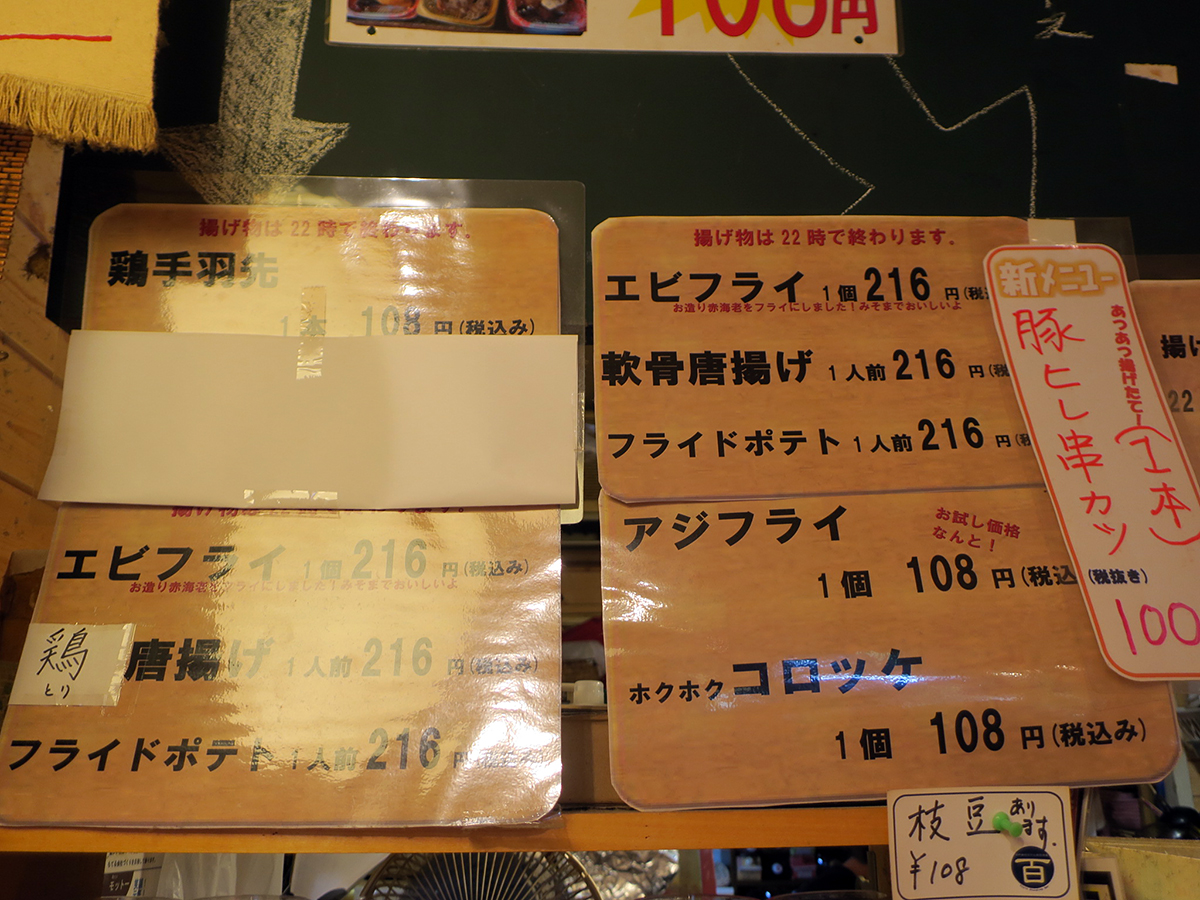 100円
揚げ物は22時で終わります。
鶏手羽先
1本 108円(税込み)
揚げ物は22時で終わります。
エビフライ 1個 216円(税込み)
お造り赤海老をフライにしました!みそまでおいしいよ
鶏
とり
唐揚げ 1人前 216円(税込み)
フライドポテト 1人前 216円
揚げ物は22時で終わります。
エビフライ 1個 216円(税
お造り赤海老をフライにしました!みそまでおいしいよ
軟骨唐揚げ 1人前 216円(税
フライドポテト 1人前 216円(税
アジフライ
お試し価格
なんと!
1個 108円(税込
ホクホクコロッケ
1個 108円(税込み)
新メニュー
あつあつ揚げたてー
豚ヒレ串カツ
(1本)
(税抜き)
100
揚げ
22
枝豆あります。
¥108
百
モットー